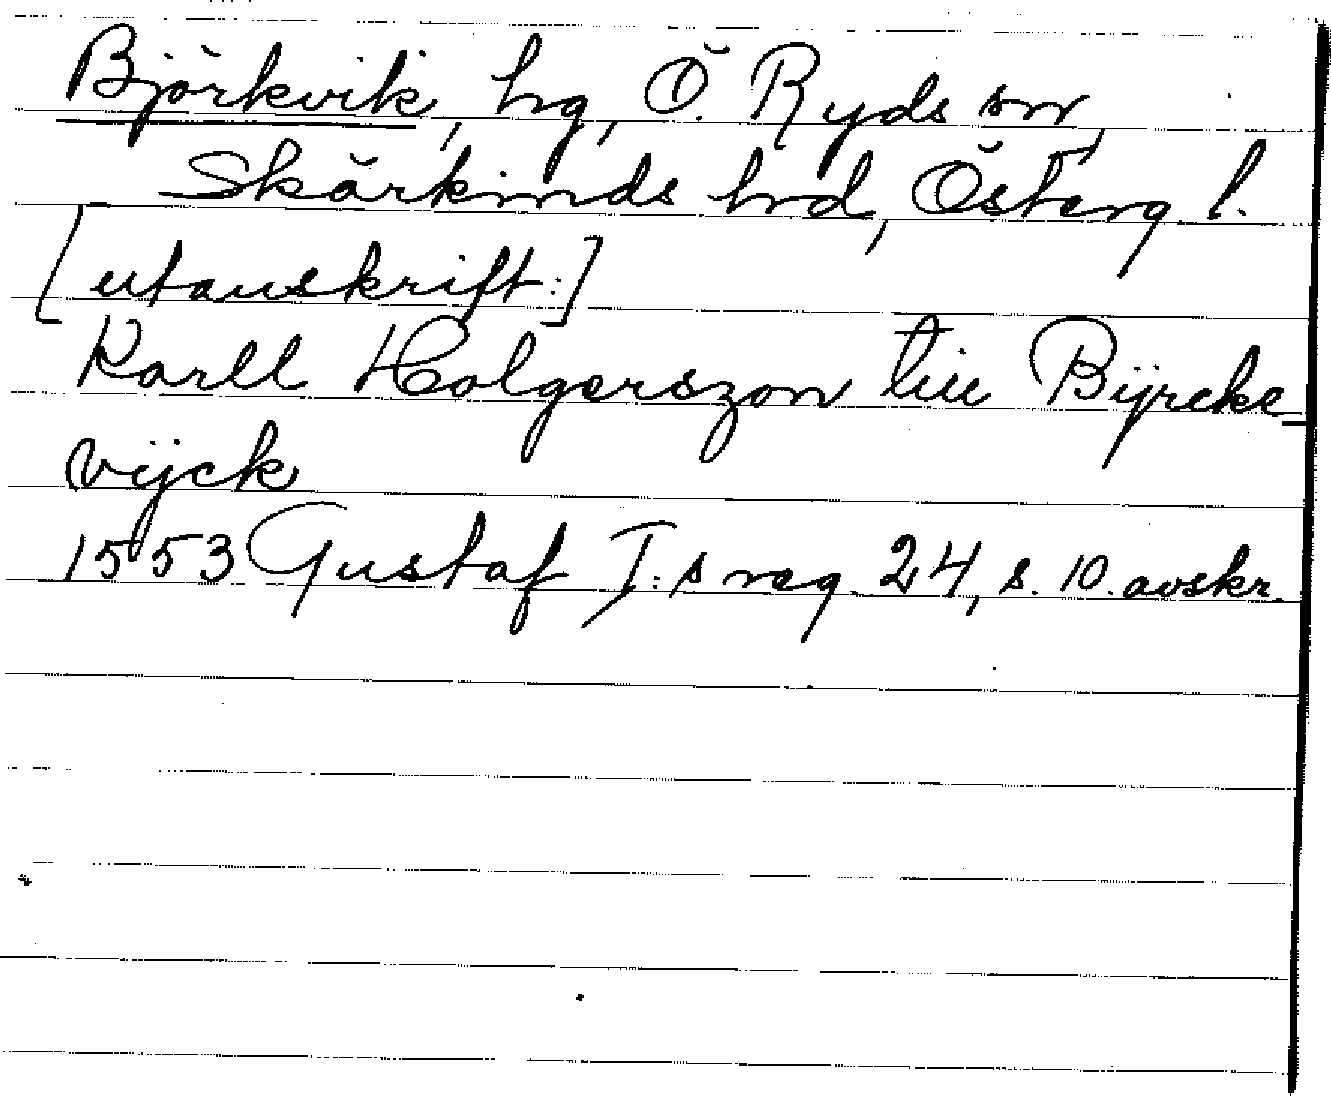 Björkvik, hg, Ö. Ryds sn,
Skärkinds hrd, Österg l.
[utanskrift:]
Karll Holgerszon till Bijrcke-
vijck
1553 Gustaf I:s reg 24, s. 10. avskr.